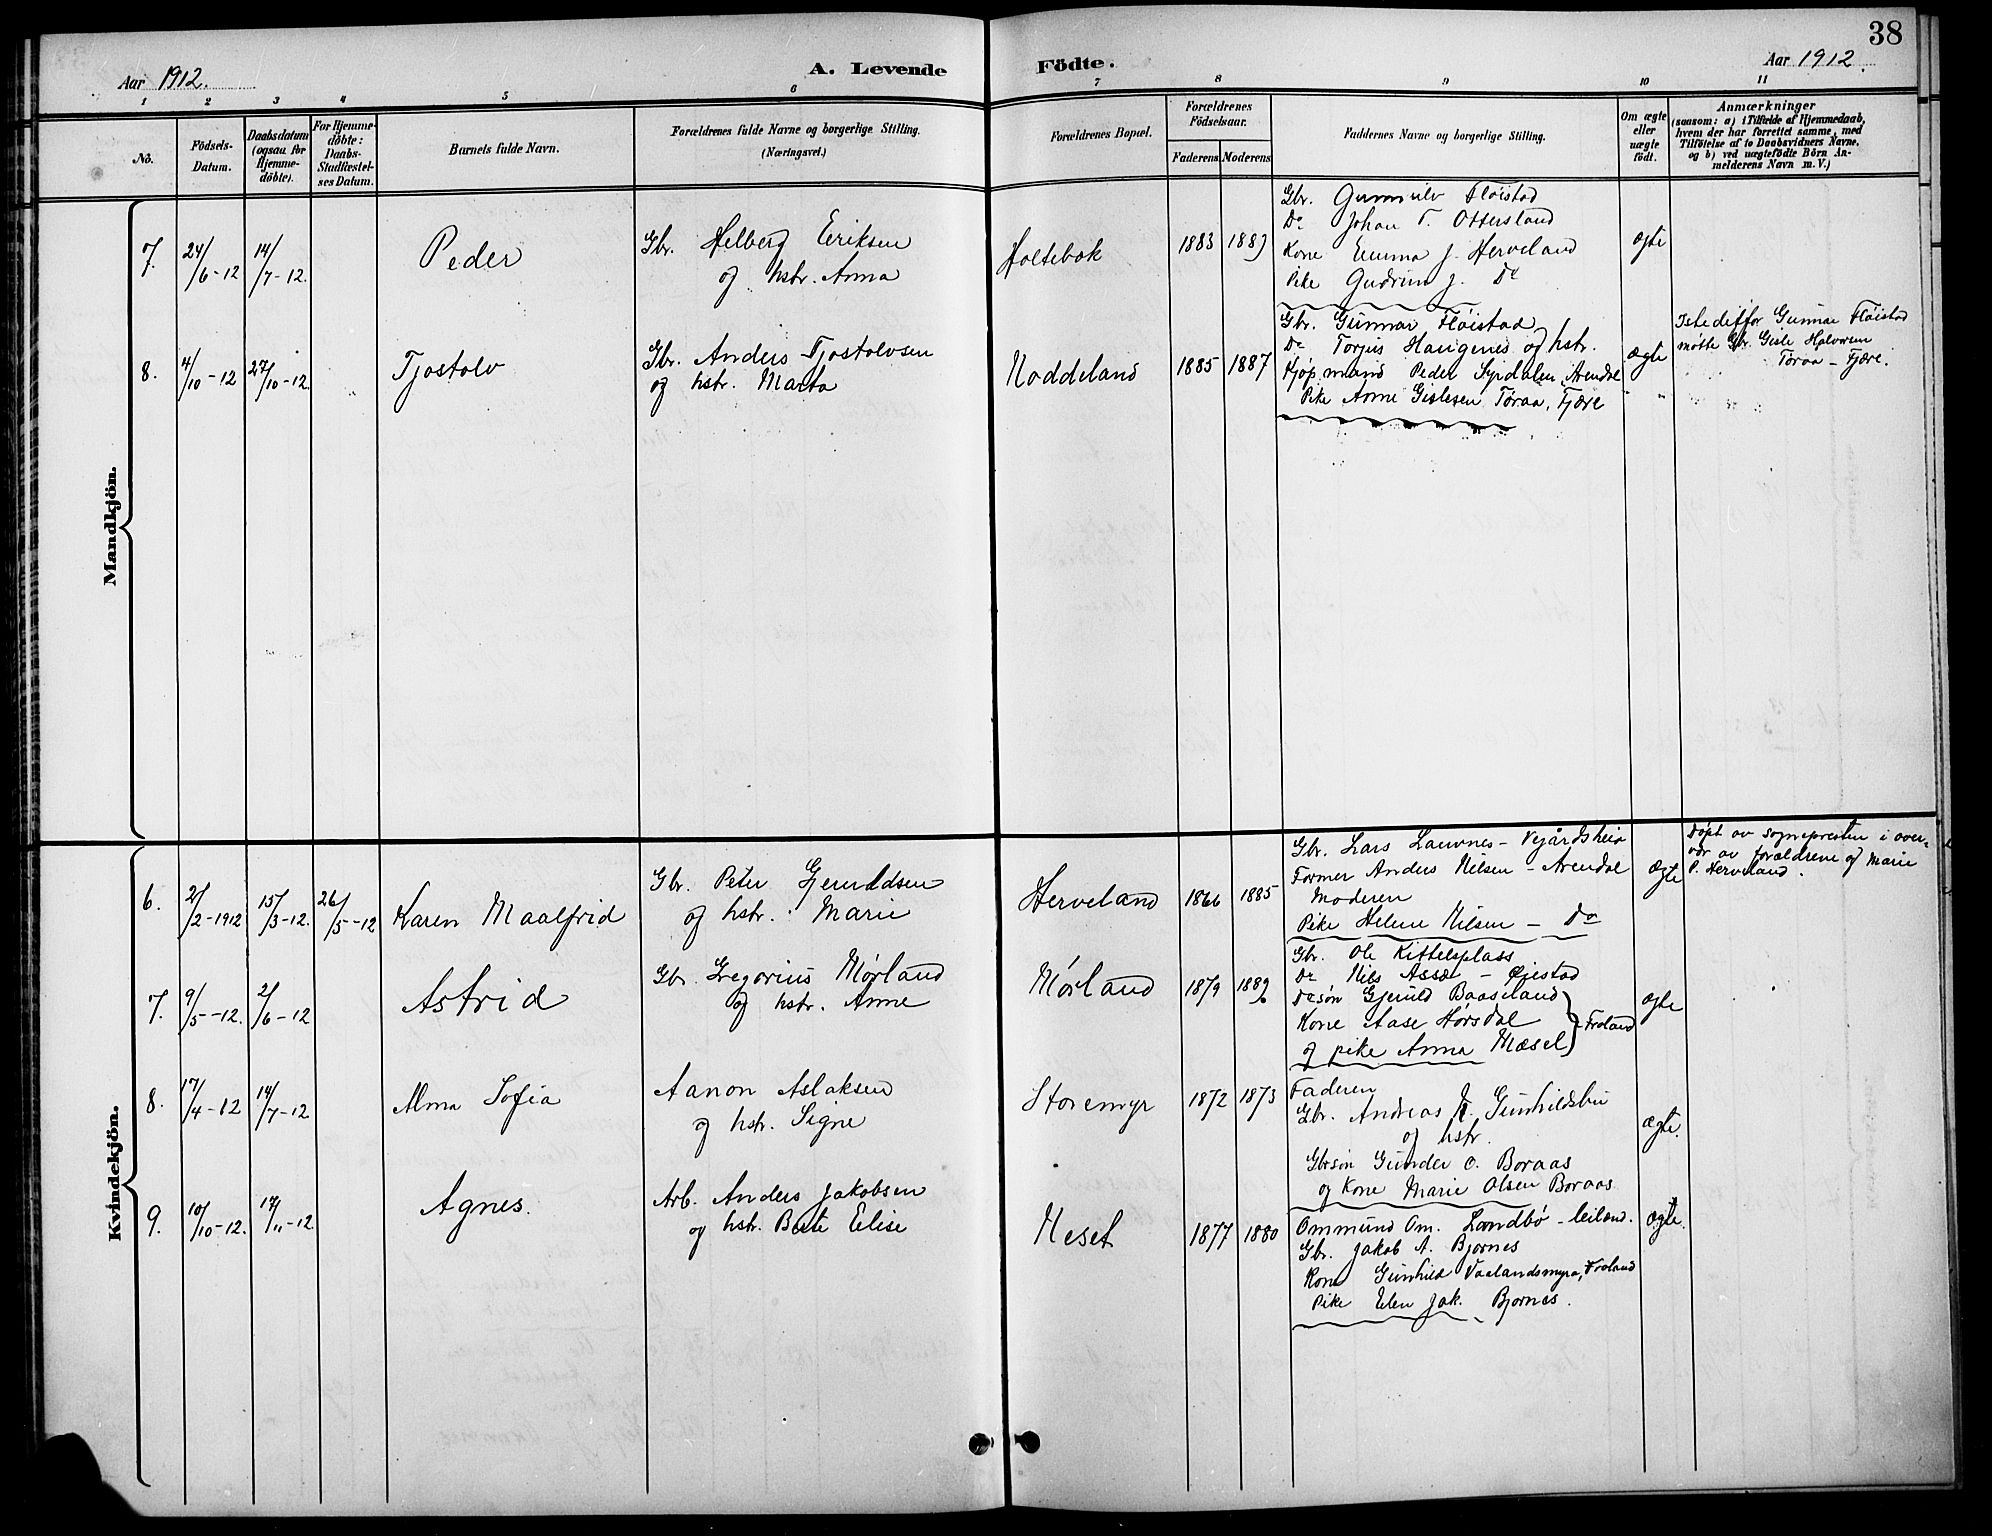 38
Aar 1912.
A. Levende
Födte.
Aar 1912.
1 2 3 4 5 6 7 8 9 10 11
No.
Födsels-
Datum.
Daabsdatum
(ogsaa for
Hjemme-
döbte).
For Hjemme-
döbte:
Daabs-
Stadfæstel-
ses Datum.
Barnets fulde Navn.
Forældrenes fulde Navne og borgerlige Stilling.
(Næringsvei.)
Forældrenes Bopæl.
Forældrenes
Födselsaar.
Faderens Moderens
Faddernes Navne og borgerlige Stilling.
Om ægte
eller
uægte
födt.
Anmærkninger
(saasom: a) i Tilfælde af Hjemmedaab,
hvem der har forrettet samme, med
Tilföielse af to Daabsvidners Navne,
og b) ved uægtefödte Börn An-
melderens Navn m. V.)
Mandkjön.
7. 24/6-12 14/7-12. Peder
Gbr. Helberg Eeriksen
og hstr. Anna
Holtebok 1883
Gbr. Gunnulv Fløistad
Do Johan T. Ottersland
Kone Emma J. Herveland
Pike Gudrun J. Do
ægte
8. 4/10-12 27/10-12. Tjostolv
Gbr. Anders Tjostolvsen
og hstr. Marta
Noddeland 1885 1887
Gbr. Gunnar Fløistad
Do Torjus Haugenes og hstr.
Kjøpmand Peder Syrdalen, Arendal
Pike Anne Gislesen Tøraa, Fjære
ægte
Istedetfor Gunnar Fløistad
møtte Gbr. Gisle Halvorsen
Tøraa - Fjære.
Kvindekjön.
6. 2/2-1912 15/3-12. 26/5-12 Karen Maalfrid
Gbr. Peter Gjeruldsen
og hstr. Marie
Herveland 1866 1885
Gbr. Lars Lauvnes - Vegårdsheia
Former Anders Nilsen - Arendal
Moderen
Pike Helene Nilsen - Do
ægte
Døpt av sognepresten i over-
vær av forældrene og Marie
P. Herveland.
7. 9/5-12. 2/6-12 Astrid
Gbr. Gregorius Mørland
og hstr. Anne
Mørland 1879 1889
Gbr. Ole Kittelsplass
Do Nils Assæl - Øiestad
Do søn Gjeruld Baaseland
Kone Aase Hørsdal
og pike Anna Mæsel } Froland
ægte
8. 17/4-12 14/7-12 Alma Sofia
Aanon Aslaksen
og hstr. Signe
Storemyr 1872 1873
Faderen
Gbr. Andreas Gunhildsbu
og hstr.
Gbrsøn Gunder O. Boraas
og Kone Marie Olsen Boraas
ægte.
9. 10/10-12. 17/11-12. Agnes.
Arb. Anders Jakobsen
og hstr. Berte Elise
Neset 1877 1880
Ommund Om. Landbø - leiland.
Gbr. Jakob A. Bjornes
Kone Gunhild Vaalandsmyra, Froland
Pike Elen Jak. Bjornes.
ægte.